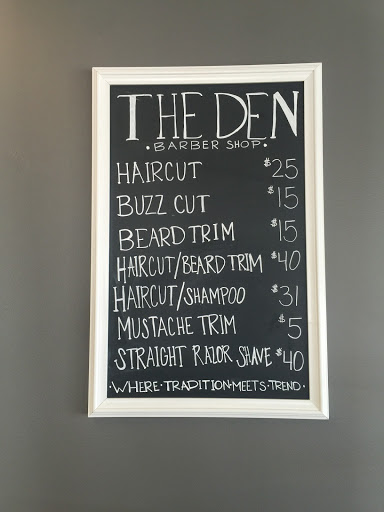 THE DEN
•BARBER SHOP•
HAIRCUT $25
BUZZ CUT $15
BEARD TRIM $15
HAIRCUT/BEARD TRIM $40
HAIRCUT/SHAMPOO $31
MUSTACHE TRIM $5
STRAIGHT RAZOR SHAVE $40
•WHERE•TRADITION•MEETS•TREND•